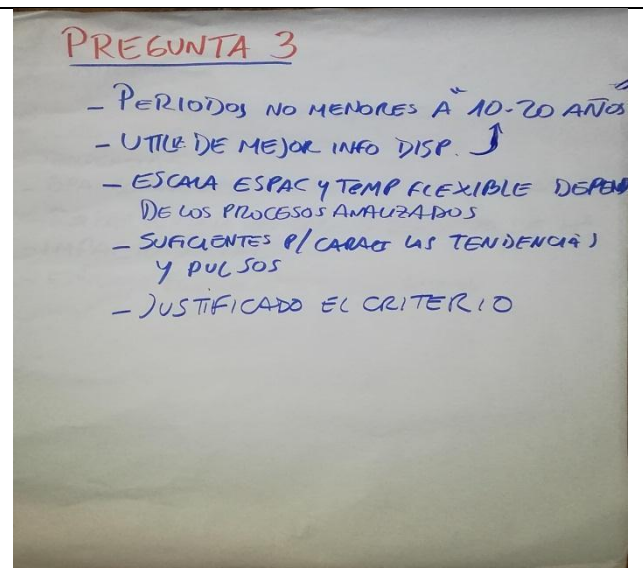 PREGUNTA 3
- PERIODOS NO MENORES A "10-20 AÑOS
- UTILIZ DE MEJOR INFO DISP.
- ESCALA ESPAC Y TEMP FLEXIBLE DEPEND
DE LOS PROCESOS ANALIZADOS
- SUFICIENTES P/ CARACT LAS TENDENCIAS
Y PULSOS
- JUSTIFICADO EL CRITERIO